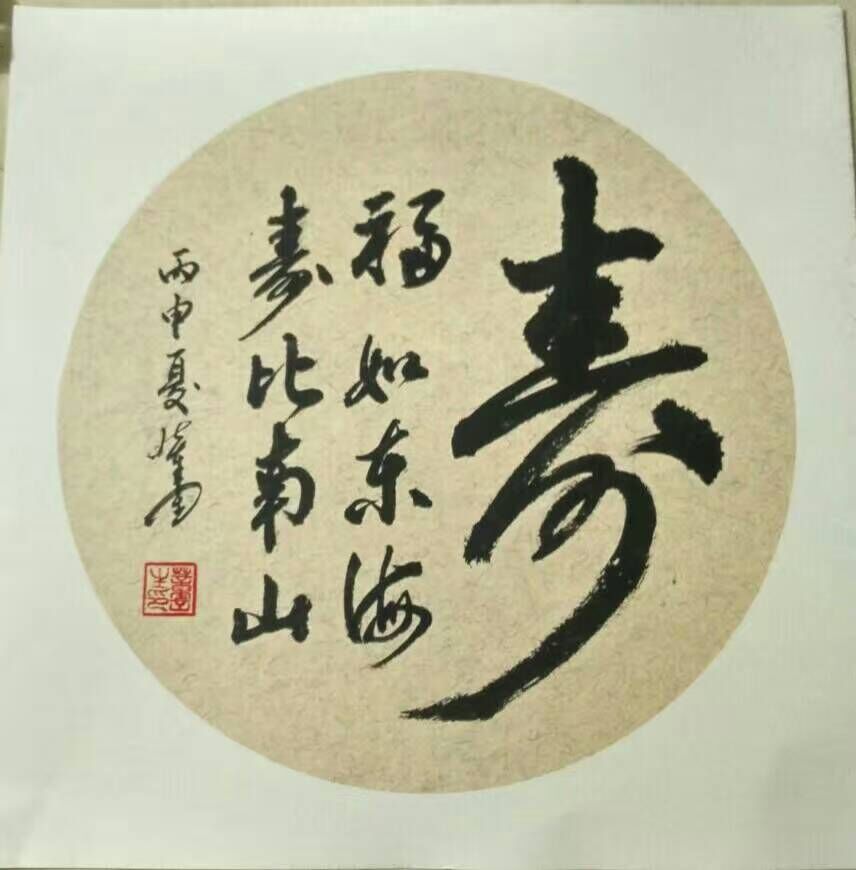 寿
福如东海
寿比南山
丙申夏